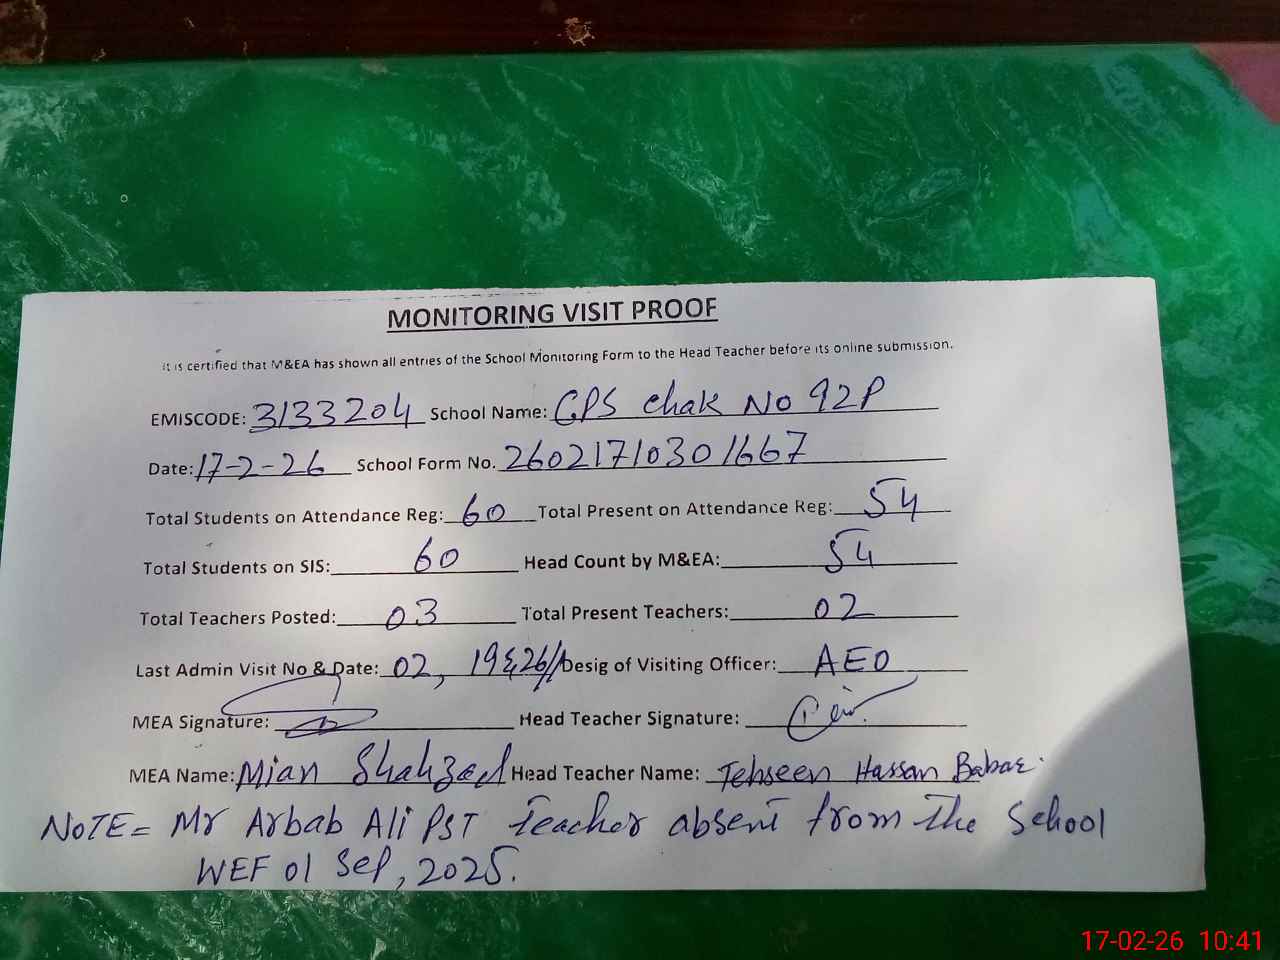 MONITORING VISIT PROOF
It is certified that M&EA has shown all entries of the School Monitoring Form to the Head Teacher before its online submission.
EMISCODE: 3133204 School Name: GPS chak No 92P
Date: 17-2-26 School Form No. 26021710301667
Total Students on Attendance Reg: 60 Total Present on Attendance Reg: 54
Total Students on SIS: 60 Head Count by M&EA: 54
Total Teachers Posted: 03 Total Present Teachers: 02
Last Admin Visit No & Date: 02, 19&26/1 Desig of Visiting Officer: AEO
MEA Signature: Head Teacher Signature:
MEA Name: Mian Shahzad Head Teacher Name: Tehseen Hassan Babar.
NOTE = Mr Arbab Ali PST Teacher absent from the School
WEF 01 Sep, 2025.
17-02-26 10:41